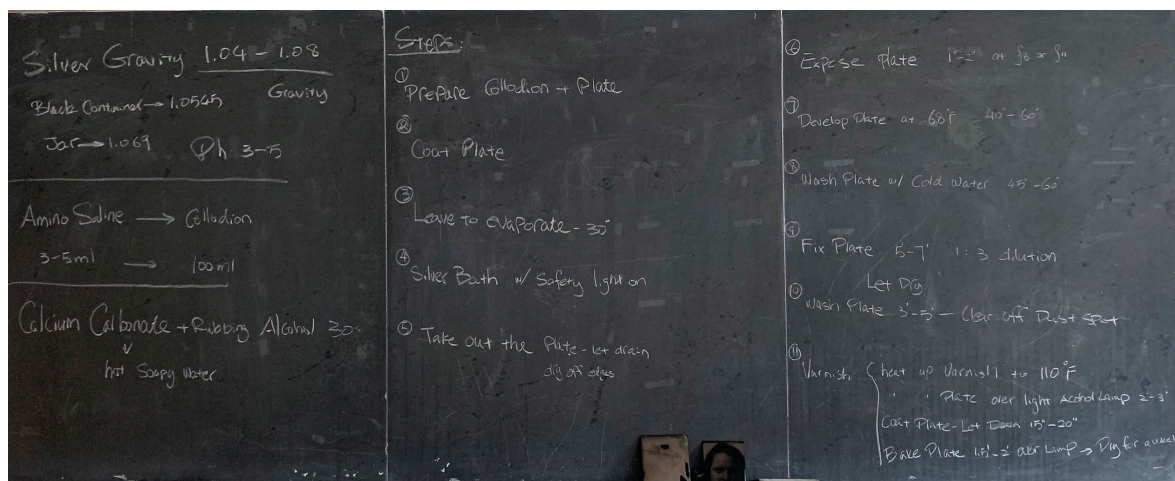 Silver Gravity 1.04 - 1.08
Gravity
Black Container → 1.0545
Jar → 1.069 Ph: 3-5
Amino Saline → Collodion
3-5ml → 100ml
Calcium Carbonate + Rubbing Alcohol
hot Soapy Water
Steps:
① Prepare Collodion + Plate
② Coat Plate
③ Leave to evaporate - 30"
④ Silver Bath w/ Safety light on
⑤ Take out the Plate - let drain
dry off edges
⑥ Expose Plate 1"-2" at f8 or f11
⑦ Develop Plate at 68°F 40"-60"
⑧ Wash Plate w/ Cold Water 45"-60"
⑨ Fix Plate 5-7' 1:3 dilution
Let Dry
⑩ Wash Plate 3'-5' - Clear off Dust spot
⑪ Varnish heat up Varnish to 110°F
" " Plate over light Alcohol Lamp 2'-3'
Coat Plate - Let Drain 15"-20"
Bake Plate 1.5'-2' over Lamp → Dry for a week